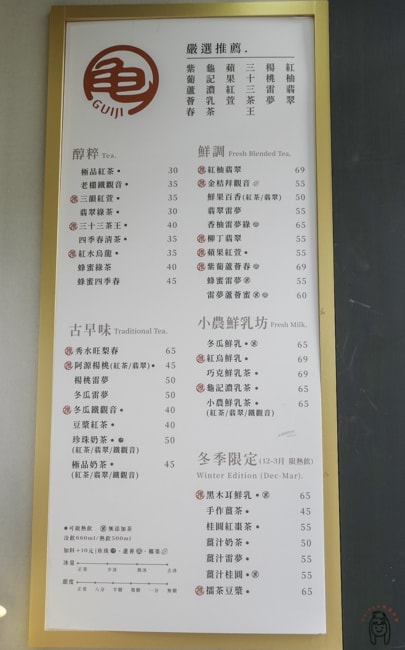 龜
GUIJI
嚴選推薦.
紅柚翡翠
楊桃雷夢
三十三茶王
蘋果紅萱
龜記濃乳茶
紫葡蘆薈春
醇粹 Tea.
極品紅茶• 30
老欉鐵觀音• 35
三韻紅萱• 35
翡翠綠茶• 30
三十三茶王• 40
四季春清茶• 35
紅水烏龍• 35
蜂蜜綠茶 40
蜂蜜四季春 45
鮮調 Fresh Blended Tea.
紅柚翡翠 69
金桔拜觀音 55
鮮果百香(紅茶/翡翠) 50
翡翠雷夢 55
香柚雷夢綠 65
柳丁翡翠 55
蘋果紅萱• 55
紫葡蘆薈春 65
蜂蜜雷夢 55
雷夢蘆薈蜜 60
古早味 Traditional Tea.
秀水旺梨春 65
阿源楊桃(紅茶/翡翠)• 45
楊桃雷夢 50
冬瓜雷夢 50
冬瓜鐵觀音• 40
豆漿紅茶• 40
珍珠奶茶• 50
(紅茶/翡翠/鐵觀音)
極品奶茶• 45
(紅茶/翡翠/鐵觀音)
小農鮮乳坊 Fresh Milk.
冬瓜鮮乳• 65
紅烏鮮乳• 69
巧克鮮乳茶• 69
龜記濃乳茶• 65
小農鮮乳茶• 65
(紅茶/翡翠/鐵觀音)
冬季限定(12-3月 限熱飲)
Winter Edition (Dec-Mar).
黑木耳鮮乳• 65
手作薑茶• 45
桂圓紅棗茶• 55
薑汁奶茶• 50
薑汁雷夢• 55
薑汁桂圓• 55
擂茶豆漿• 65
•可做熱飲 無添加茶
冷飲660ml/熱飲500ml
加料+10元|珍珠、蘆薈、椰果
冰量
正常 少冰 微冰 去冰
甜度
正常 八分 半糖 微糖 一分 無糖